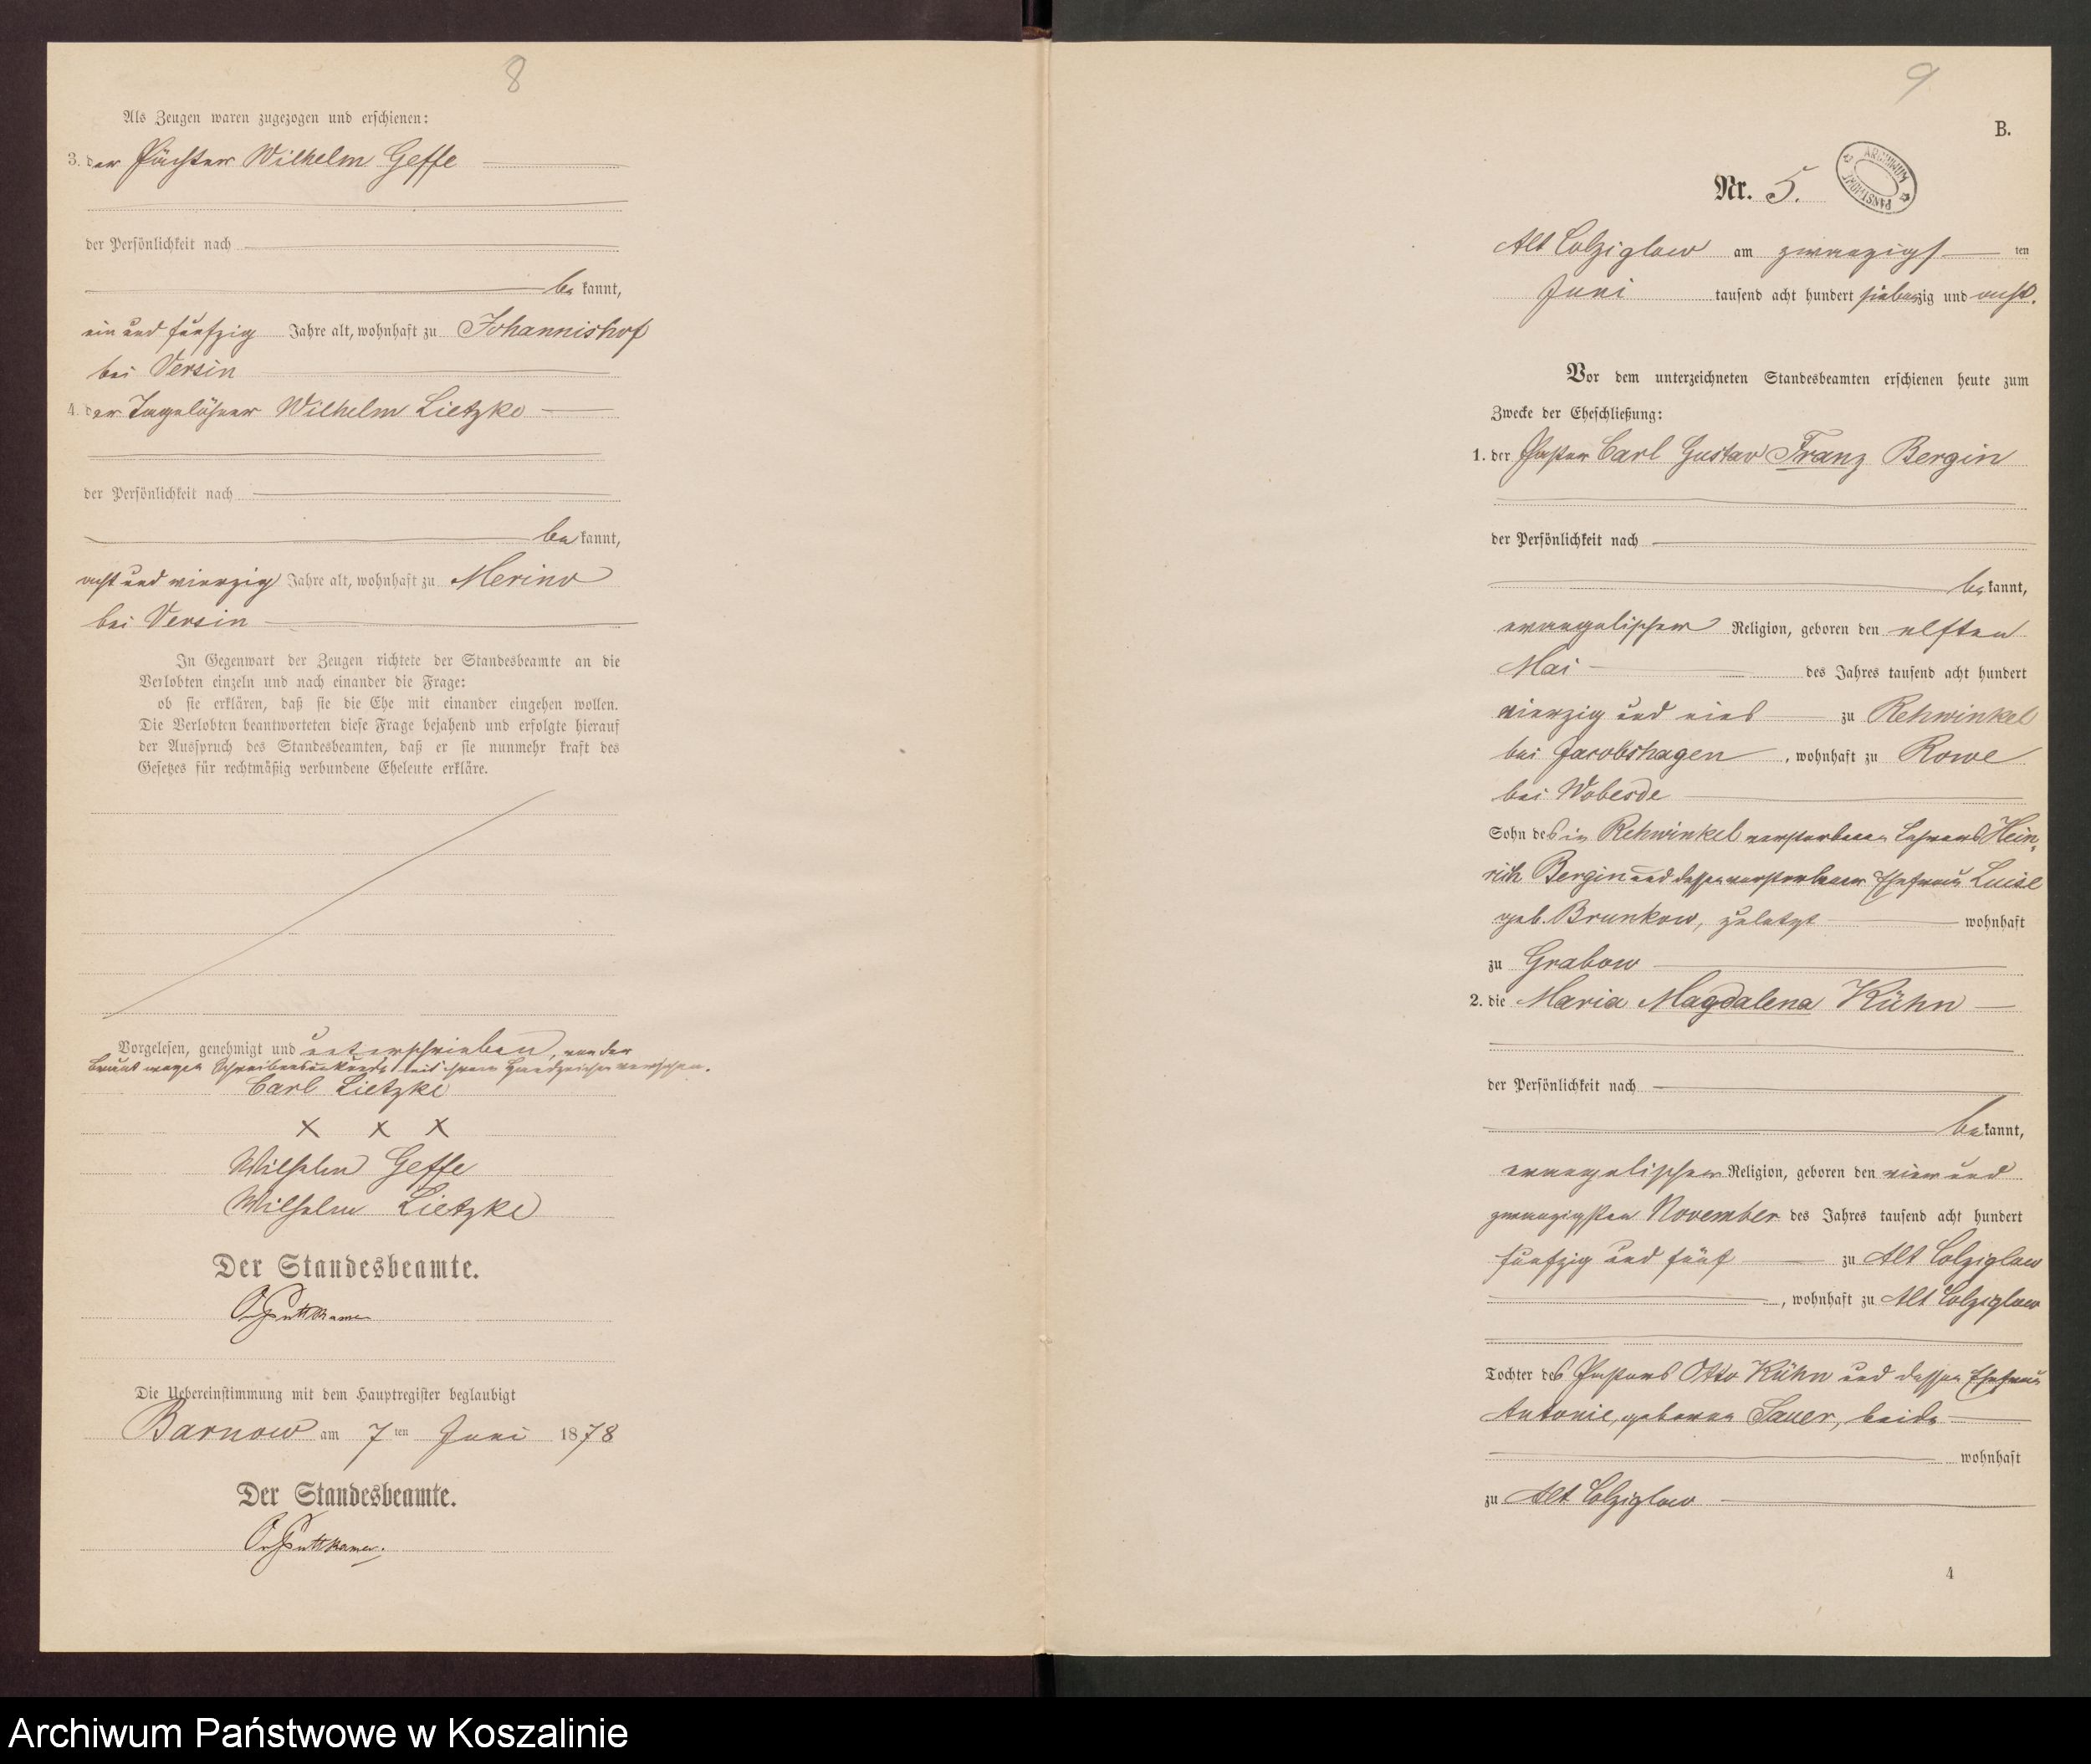 8
Als Zeugen waren zugezogen und erschienen:
3. der Pächter Wilhelm Geffe
der Persönlichkeit nach
bekannt,
ein und funfzig Jahre alt, wohnhaft zu Johannishof
bei Versin
4. der Tagelöhner Wilhelm Lietzke
der Persönlichkeit nach
bekannt,
acht und vierzig Jahre alt, wohnhaft zu Merino
bei Versin
In Gegenwart der Zeugen richtete der Standesbeamte an die
Verlobten einzeln und nach einander die Frage:
ob sie erklären, daß sie die Ehe mit einander eingehen wollen.
Die Verlobten beantworteten diese Frage bejahend und erfolgte hierauf
der Ausspruch des Standesbeamten, daß er sie nunmehr kraft des
Gesetzes für rechtmäßig verbundene Eheleute erkläre.
Vorgelesen, genehmigt und unterschrieben, von der
Braut wegen Schreibensunkunde mit ihrem Handzeichen versehen.
Carl Lietzke
X X X
Wilhelm Geffe
Wilhelm Lietzke
Der Standesbeamte.
v. Puttkamer
Die Uebereinstimmung mit dem Hauptregister beglaubigt
Barnow am 7ten Juni 1878
Der Standesbeamte.
v. Puttkamer.
9
B.
ARCHIWUM PAŃSTWOWE
Nr. 5.
Alt Colziglow am zwanzigsten
Juni tausend acht hundert siebenzig und acht.
Vor dem unterzeichneten Standesbeamten erschienen heute zum
Zwecke der Eheschließung:
1. der Pastor Carl Gustav Franz Bergin
der Persönlichkeit nach
bekannt,
evangelischer Religion, geboren den elften
Mai des Jahres tausend acht hundert
vierzig und eins zu Rehwinkel
bei Jacobshagen, wohnhaft zu Rowe
bei Wobesde
Sohn des in Rehwinkel verstorbenen Lehrers Hein-
rich Bergin und dessen verstorbener Ehefrau Luise
geb. Brunkow, zuletzt wohnhaft
zu Grabow
2. die Maria Magdalena Kühn
der Persönlichkeit nach
bekannt,
evangelischer Religion, geboren den vier und
zwanzigsten November des Jahres tausend acht hundert
funfzig und fünf zu Alt Colziglow
, wohnhaft zu Alt Colziglow
Tochter des Pastors Otto Kühn und dessen Ehefrau
Antonie, geborene Sauer, beide
wohnhaft
zu Alt Colziglow
4
Archiwum Państwowe w Koszalinie